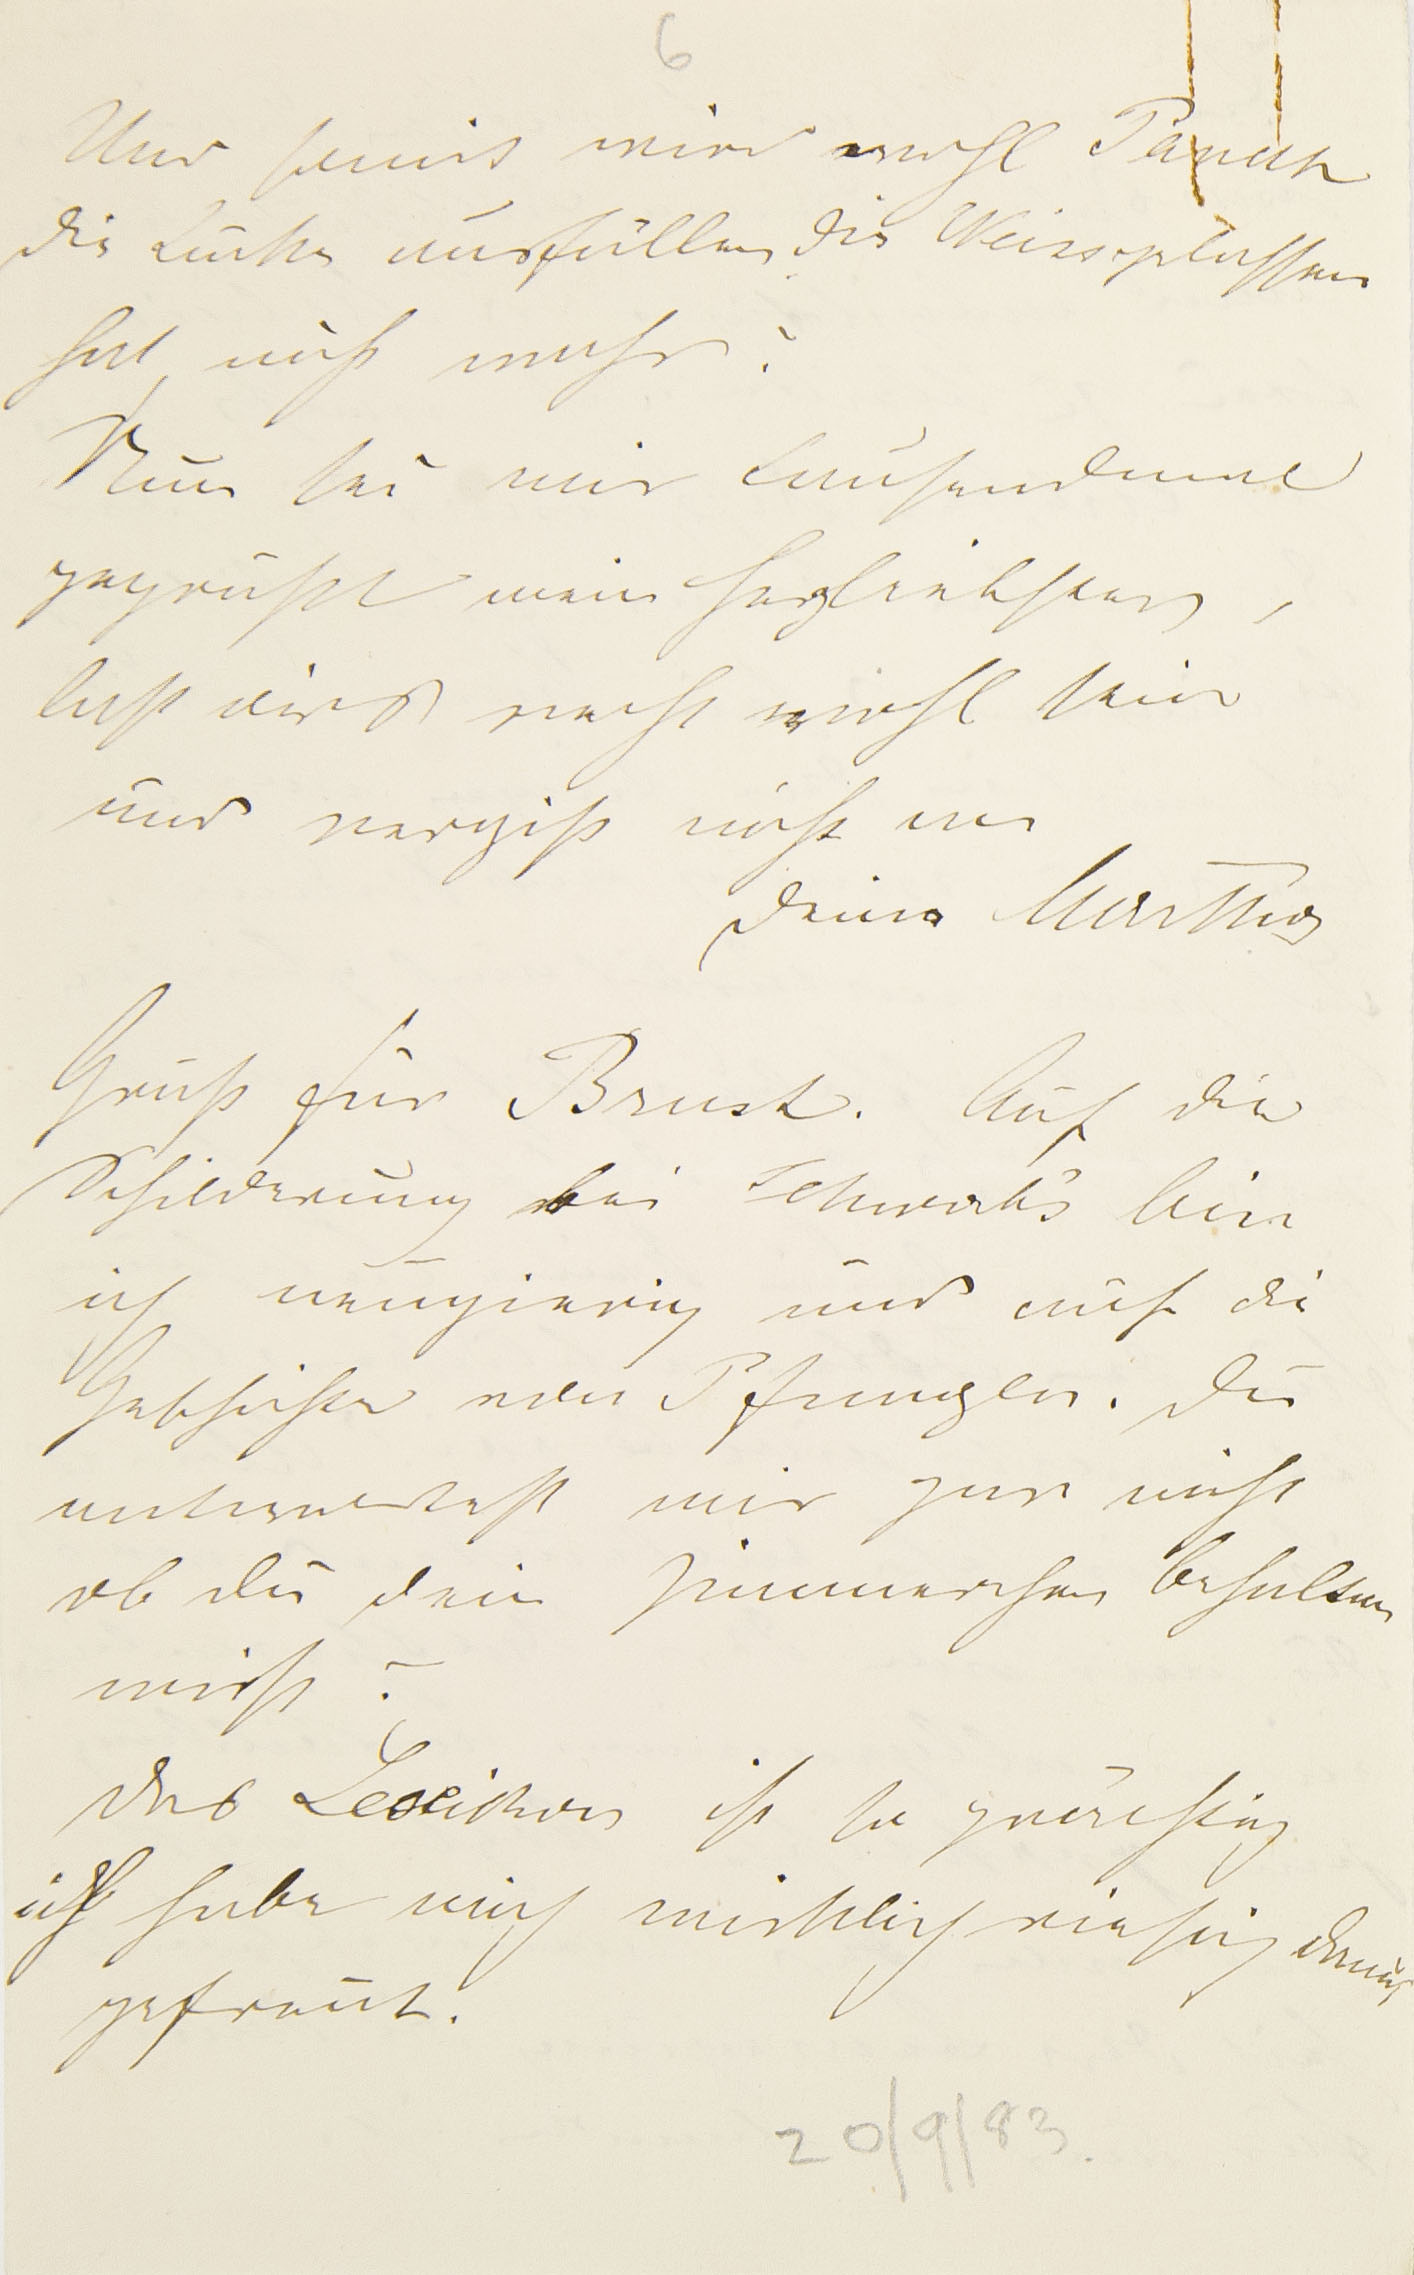 6
Und somit wird wohl Paneth
die Lücke ausfüllen die Weiss gelassen
hat, nicht wahr?
Nun sei mir tausendmal
gegrüßt mein Herzliebster,
laß dirs recht wohl sein
und vergiß nicht an
deine Martha
Gruß für Brust. Auf die
Schilderung bei Schwab's bin
ich neugierig und auf die
Geschichte von Pfungen. Du
antwortest mir gar nicht
ob du dein Zimmerchen behalten
wirst?
das Lexikon ist so prächtig
ich habe mich wirklich riesig damit
gefreut.
20/9/83.